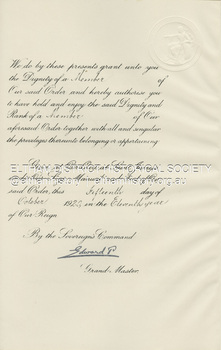 We do by these presents grant unto you
the Dignity of a Member of
Our said Order and hereby authorise you
to have hold and enjoy the said Dignity and
Rank of a Member of Our
aforesaid Order together with all and singular
the privileges thereunto belonging or appertaining
Given at
said Order, this Fifteenth day of
October 1920, in the Eleventh year
of Our Reign.
By the Sovereign's Command
Edward P.
Grand-Master